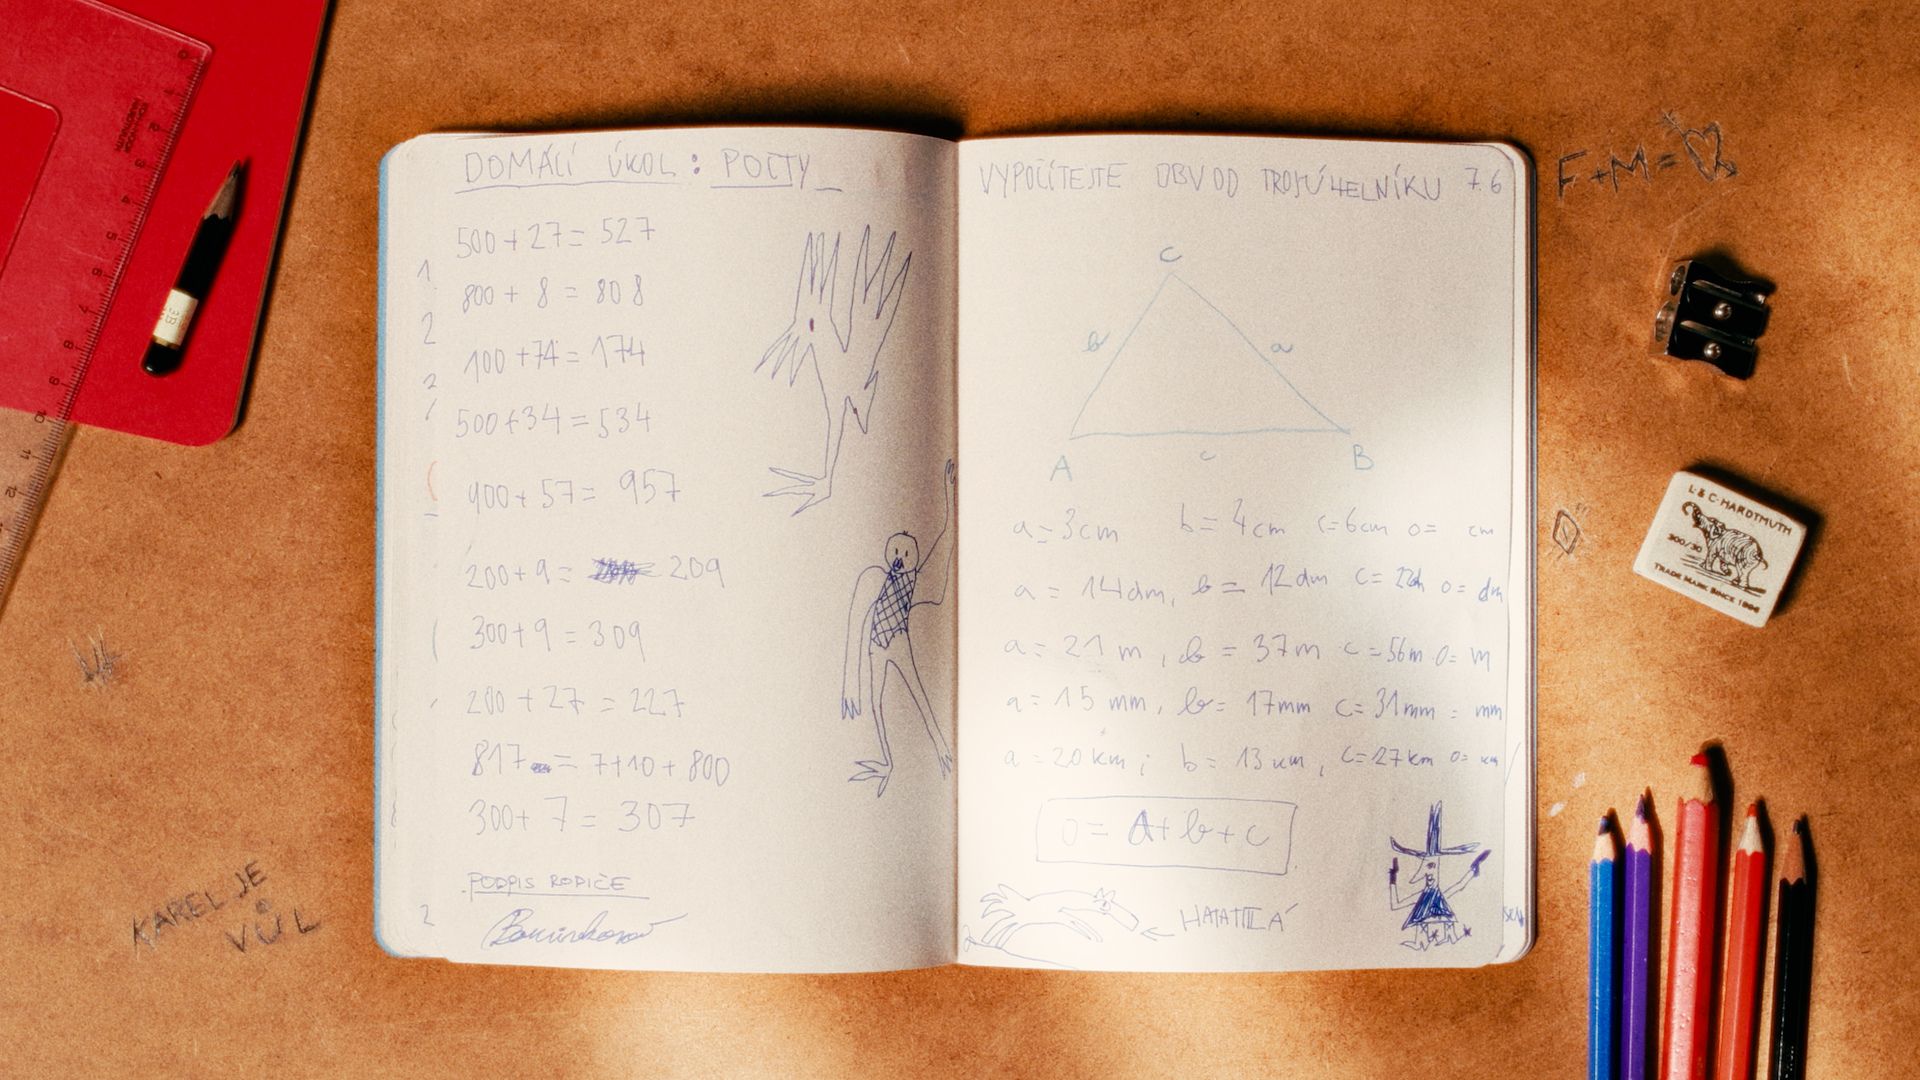 DOMÁCÍ ÚKOL: POČTY
500 + 27 = 527
800 + 8 = 808
100 + 74 = 174
500 + 34 = 534
900 + 57 = 957
200 + 9 = 209
300 + 9 = 309
200 + 27 = 227
817 = 7 + 10 + 800
300 + 7 = 307
PODPIS RODIČE
VYPOČÍTEJTE OBVOD TROJÚHELNÍKU 7.6
C
b a
A c B
a = 3cm b = 4cm c = 6cm o = cm
a = 14dm, b = 12dm c = 22d o = dm
a = 21 m, b = 37m c = 56m o = m
a = 15 mm, b = 17mm c = 31mm = mm
a = 20 km; b = 13 km, c = 27km o = km
o = A + b + c
F + M =
L. & C. HARDTMUTH
300/30
TRADE MARK SINCE
KAREL JE
VŮL
3B